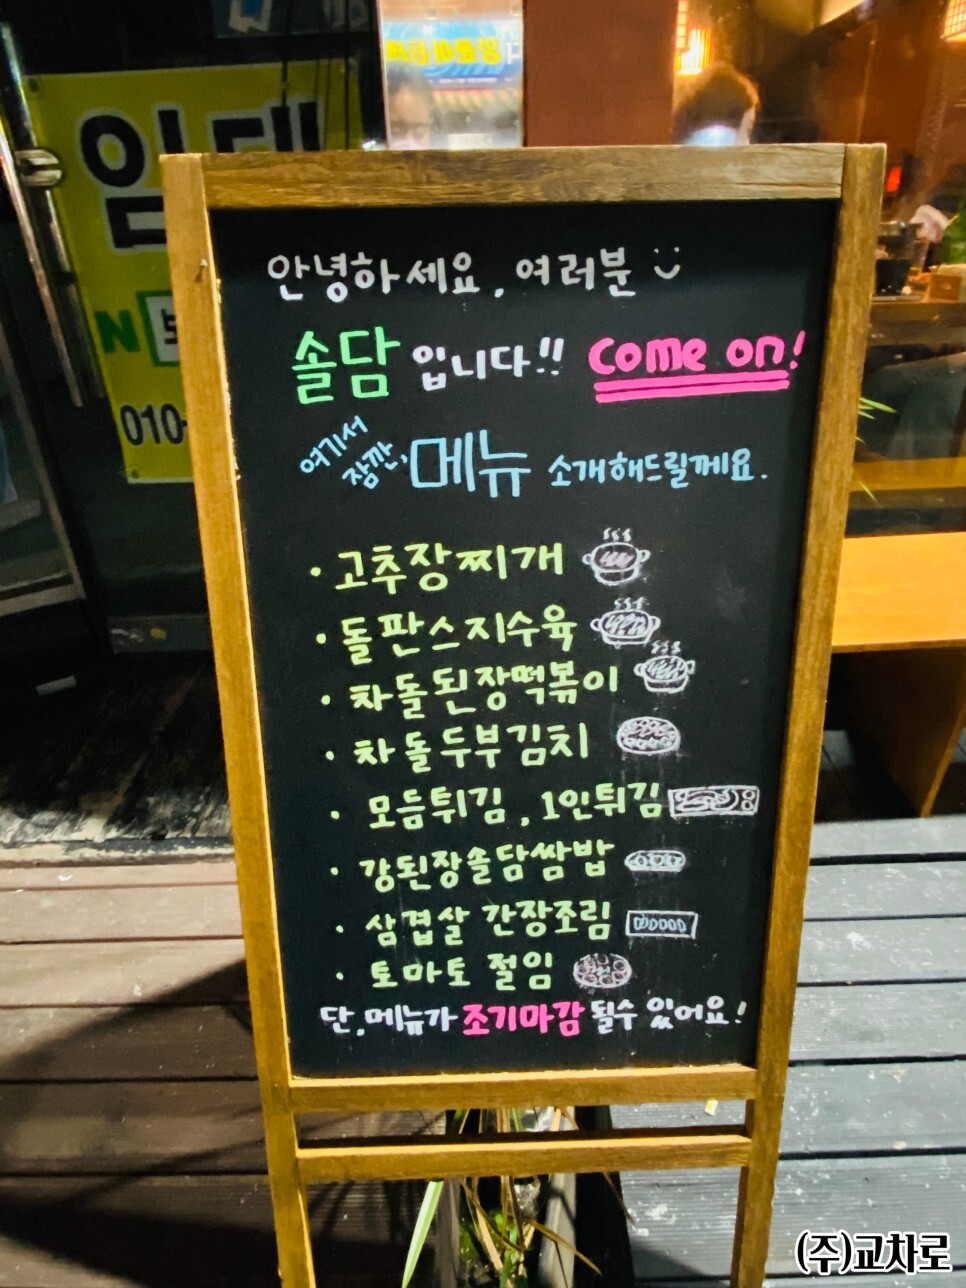 임대
N
010-
안녕하세요, 여러분
솔담 입니다!! Come on!
여기서 잠깐, 메뉴 소개해드릴께요.
· 고추장찌개
· 돌판스지수육
· 차돌된장떡볶이
· 차돌두부김치
· 모듬튀김, 1인튀김
· 강된장솔담쌈밥
· 삼겹살 간장조림
· 토마토 절임
단, 메뉴가 조기마감 될수 있어요!
(주)교차로